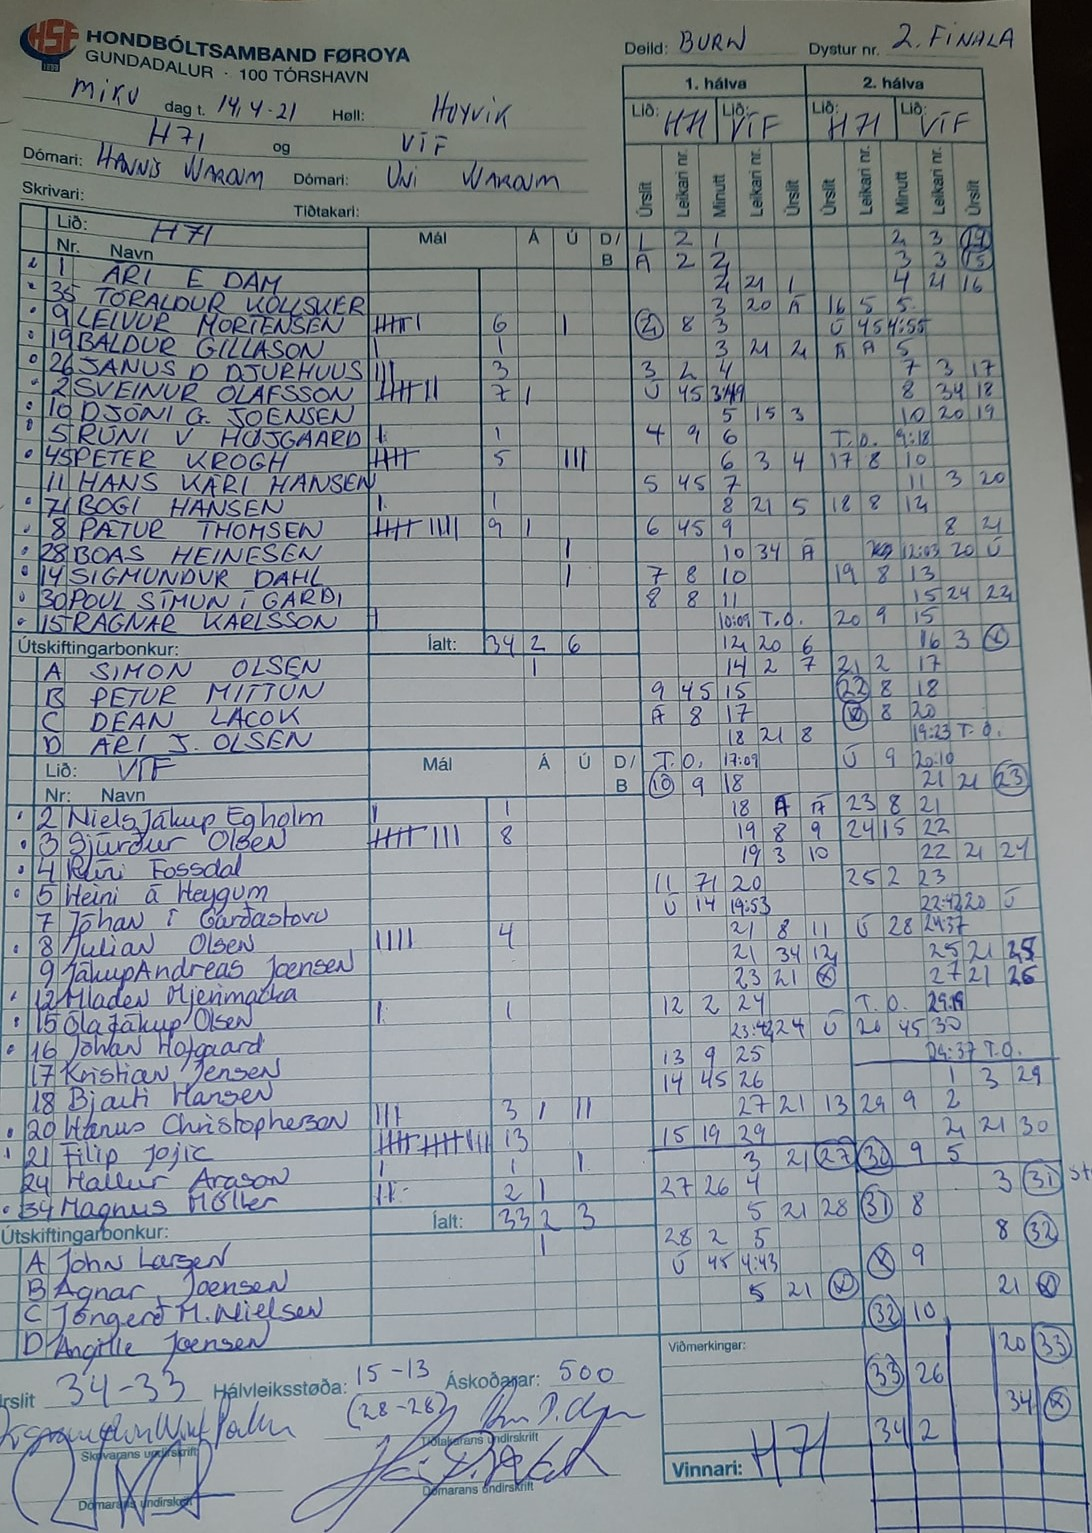 HSF
HONDBÓLTSAMBAND FØROYA
GUNDADALUR · 100 TÓRSHAVN
Deild: BURN Dystur nr. 2. FINALA
MIKU dag t. 14,4-21 Høll: HOYVIK
H71 og VÍF
Dómari: HANNIS WARDUM Dómari: UNI WARDUM
Skrivari: Tíðtakari:
1. hálva 2. hálva
Lið: H71 Lið: VÍF Lið: H71 Lið: VÍF
Úrslit Leikari nr. Minutt Leikari nr. Úrslit Úrslit Leikari nr. Minutt Leikari nr. Úrslit
Lið: H71 Mál Á Ú D/B
Nr. Navn
1 ÁRI E DAM
35 TÓRALDUR KOLLSKER
9 LEIVUR MORTENSEN 6
19 BALDUR GILLASON 1
26 JANUS D DJURHUUS 3
2 SVEINUR OLAFSSON 7
10 DJÓNI G. JOENSEN
5 RÚNI V HØJGAARD 1
45 PETER KROGH 5
11 HANS KÁRI HANSEN
71 BOGI HANSEN 1
8 PÆTUR THOMSEN 9
28 BOAS HEINESEN
14 SIGMUNDUR DAHL
30 POUL SÍMUN Í GARÐI
15 RAGNAR KARLSSON
Útskiftingarbonkur: Íalt: 34 2 6
A SIMON OLSEN
B PETUR MITTÚN
C DEAN LACOK
D ÁRI J. OLSEN
Lið: VÍF Mál Á Ú D/B
Nr: Navn
2 Niels Jákup Egholm 1
3 Sjúrður Olsen 8
4 Rúni Fossdal
5 Heini á Heygum
7 Jóhan í Garðastovu
8 Julian Olsen 4
9 Jákup Andreas Joensen
12 Mladen Mjenimacka
15 Óla Jákup Olsen 1
16 Jóhan Hofgaard
17 Kristian Jensen
18 Bjarti Hansen
20 Hanus Christopherson 3
21 Filip Jojic 13
24 Hallur Arason 1
34 Magnus Møller 2
Útskiftingarbonkur: Íalt: 33 2 3
A John Larsen
B Agnar Joensen
C Jóngerð M. Nielsen
D Joensen
Úrslit 34-33 Hálvleiksstøða: 15-13 (28-28) Áskoðarar: 500
Skrivarans undirskrift Tíðtakarans undirskrift
Dómarans undirskrift Dómarans undirskrift
1 2 1
Á 2 2
2 21 1
3 20 Á
2 8 3
3 21 2
3 2 4
Ú 45 3:49
5 15 3
4 9 6
6 3 4
5 45 7
8 21 5
6 45 9
10 34 Á
7 8 10
8 8 11
10:09 T.O.
12 20 6
14 2 7
9 45 15
Á 8 17
18 21 8
T.O. 17:09
10 9 18
18 Á Á
19 8 9
19 3 10
11 71 20
Ú 14 19:53
21 8 11
21 34 12
23 21
12 2 24
23:42 24 Ú
13 9 25
14 45 26
27 21 13
15 19 29
3 21 27
27 26 4
5 21 28
28 2 5
Ú 45 4:43
5 21
2 3 14
3 3 15
4 21 16
16 5 5
Ú 45 4:55
Á A 5
7 3 17
8 34 18
10 20 19
T.O. 9:18
17 8 10
11 3 20
18 8 12
8 21
12:03 20 Ú
19 8 13
15 24 22
20 9 15
16 3
21 2 17
22 8 18
8 20
19:23 T.O.
Ú 9 20:10
21 21 23
23 8 21
24 15 22
22 21 24
25 2 23
22:42 20 Ú
Ú 28 24:37
25 21 25
27 21 26
T.O. 29:19
26 45 30
29:37 T.O.
1 3 29
29 9 2
2 21 30
30 9 5
3 31
31 8
8 32
9
21
32 10
20 33
33 26
34
34 2
Viðmerkingar:
Vinnari: H71